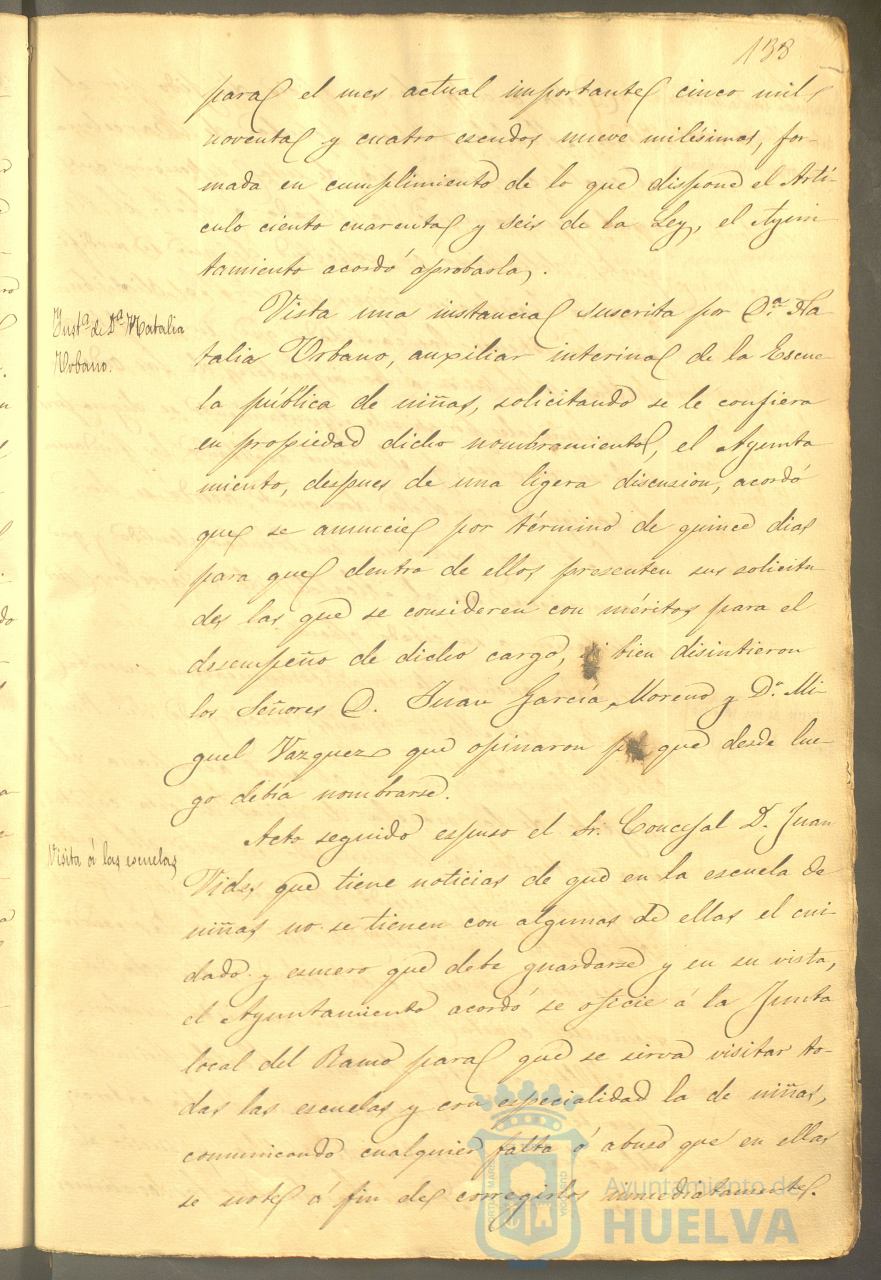 138
para el mes actual importante cinco mil
noventa y cuatro escudos nueve milésimas, for-
mada en cumplimiento de lo que dispone el Artí-
culo ciento cuarenta y seis de la Ley, el Ayun
tamiento acordó aprobarla,.
Inst.ª de D.ª Natalia
Urbano.
Vista una instancia suscrita por D.ª Na-
talia Urbano, auxiliar interina de la Escue-
la pública de niñas, solicitando se le confiera
en propiedad dicho nombramiento, el Ayunta
miento, despues de una ligera discusion, acordó
que se anuncie por término de quince dias
para que dentro de ellos presenten sus solicitu
des las que se consideren con méritos para el
desempeño de dicho cargo, si bien disintieron
los Señores D. Juan García Moreno y D.n Mi-
guel Vazquez que opinaron que desde lue-
go debía nombrarse.
Visita á las escuelas
Acto seguido espuso el Sr. Concejal D. Juan
Vides, que tiene noticias de que en la escuela de
niñas no se tienen con algunas de ellas el cui-
dado y esmero que debe guardarse y en su vista,
el Ayuntamiento acordó se oficie á la Junta
local del Ramo para que se sirva visitar to-
das las escuelas y con especialidad la de niñas,
comunicando cualquier falta ó abuso que en ellas
se note á fin de corregirlos inmediatamente.
Ayuntamiento de
HUELVA